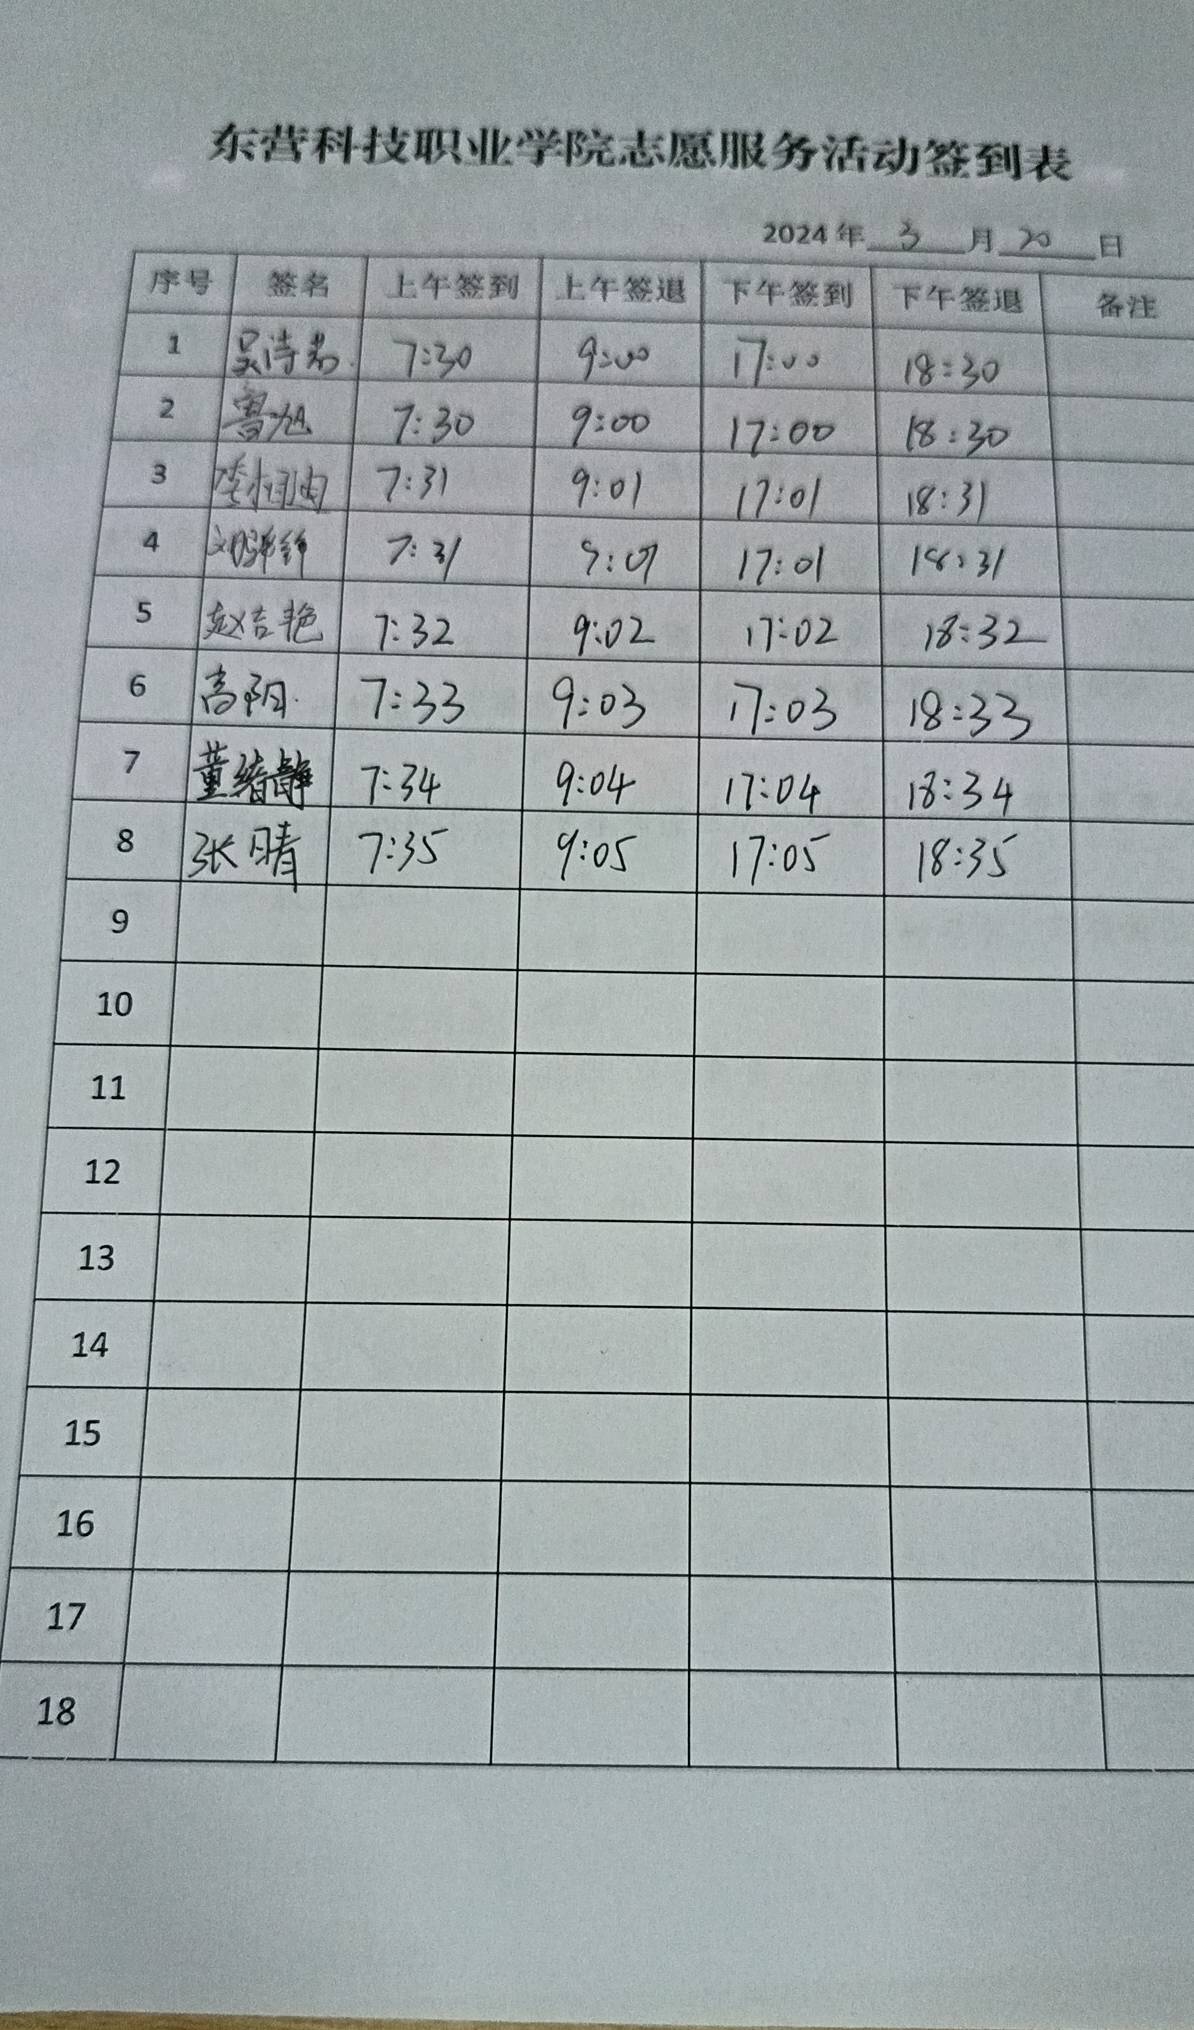 东营科技职业学院志愿服务活动签到表
2024 年 3 月 20 日
序号 签名 上午签到 上午签退 下午签到 下午签退 备注
1 吴诗茗 7:30 9:00 17:00 18:30
2 鲁旭 7:30 9:00 17:00 18:30
3 7:31 9:01 17:01 18:31
4 7:31 9:01 17:01 18:31
5 赵吉艳 7:32 9:02 17:02 18:32
6 高阳 7:33 9:03 17:03 18:33
7 董绪静 7:34 9:04 17:04 18:34
8 张晴 7:35 9:05 17:05 18:35
9
10
11
12
13
14
15
16
17
18